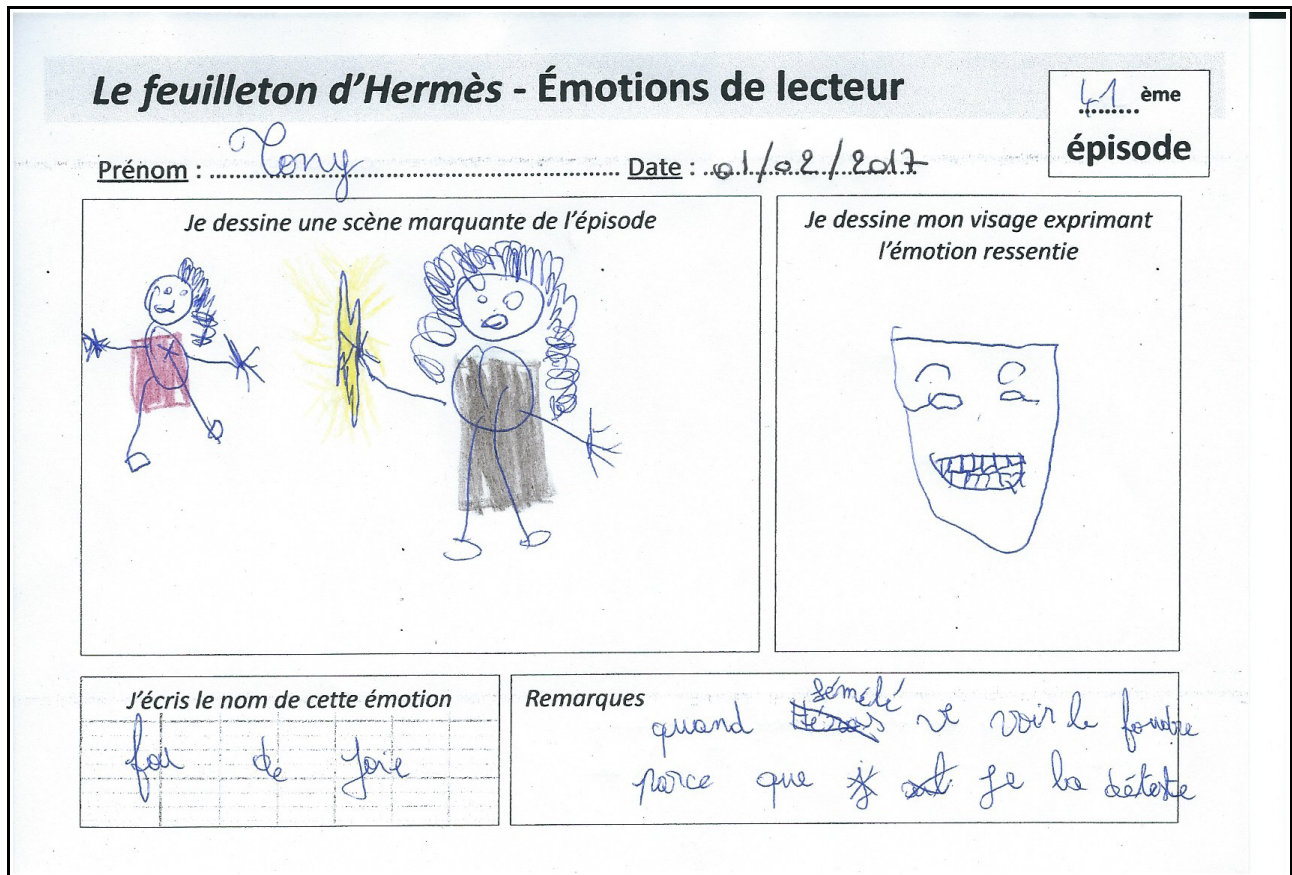 Le feuilleton d'Hermès - Émotions de lecteur
41 ème
épisode
Prénom : Tony Date : 01/02/2017
Je dessine une scène marquante de l'épisode
Je dessine mon visage exprimant
l'émotion ressentie
J'écris le nom de cette émotion
fou de joie
Remarques
sémélé
quand vt voir le foudre
parce que je la déteste